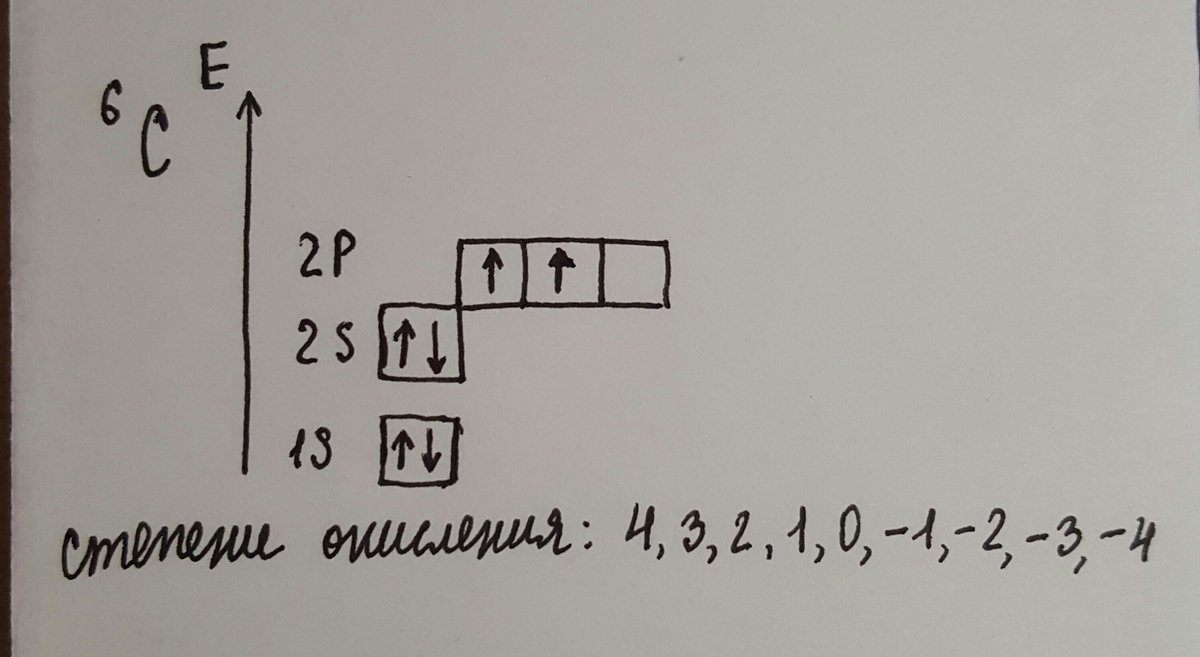 E
⁶C
2P ↑ ↑
2S ↑↓
1S ↑↓
степени окисления: 4, 3, 2, 1, 0, -1, -2, -3, -4